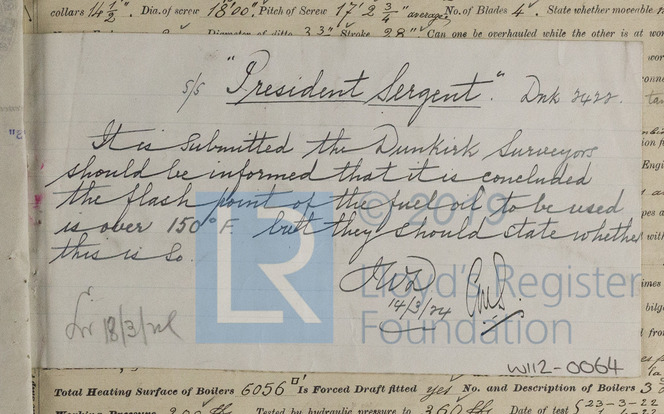 collars 14 1/2". Dia. of screw 18'00". Pitch of Screw 17' 2 3/4" average No. of Blades 4. State whether moveable
Diameter of ditto 3 3/4" Stroke 28" Can one be overhauled while the other is at wor
S/S "President Sergent". Dnk 2422.
It is submitted the Dunkirk Surveyors
should be informed that it is concluded
the flash point of the fuel oil to be used
is over 150°F. but they should state whether
this is so.
14/3/24
18/3/24
LR
© 2019
Lloyd's Register
Foundation
W112-0064
Total Heating Surface of Boilers 6056 □' Is Forced Draft fitted yes No. and Description of Boilers 3
Working Pressure 200 lbs Tested by hydraulic pressure to 360 lbs Date of test 23-3-22